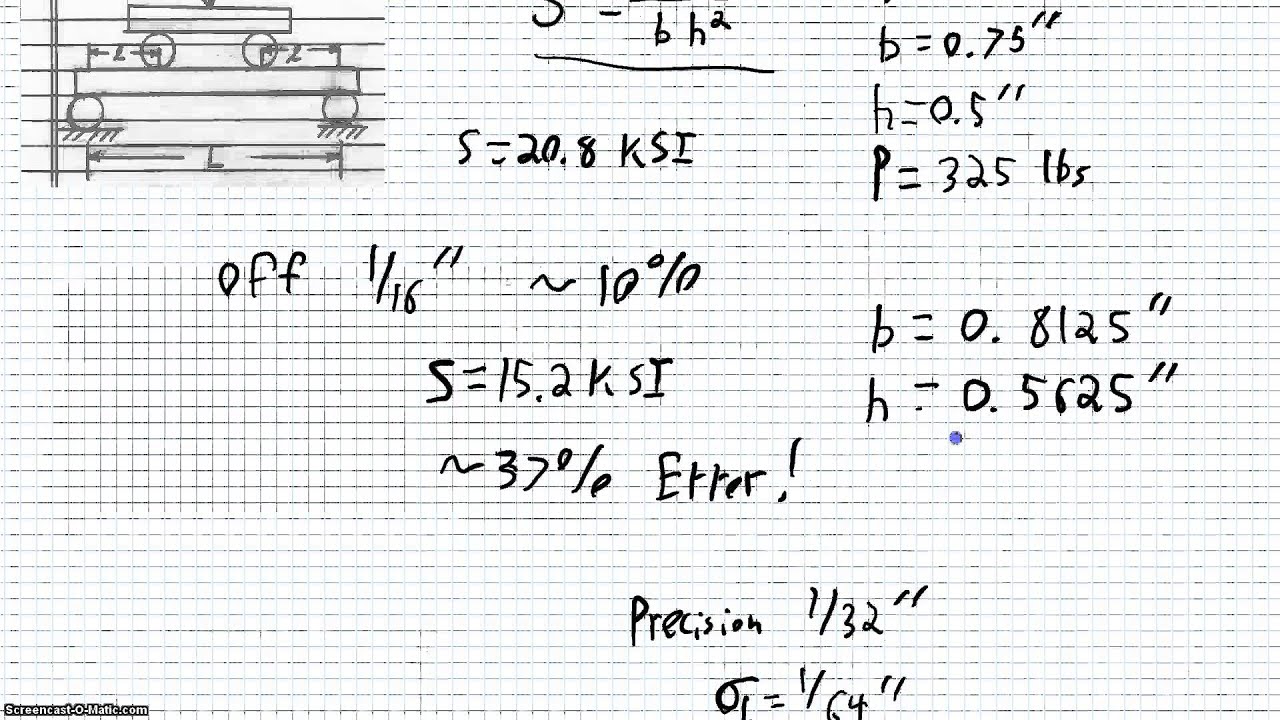 b h²
b = 0.75"
h = 0.5"
S = 20.8 KSI
P = 325 lbs
L
off 1/16" ~ 10%
b = 0.8125"
S = 15.2 KSI
h = 0.5625"
~ 37% Error!
Precision 1/32"
σ₁ = 1/64"
Screencast-O-Matic.com